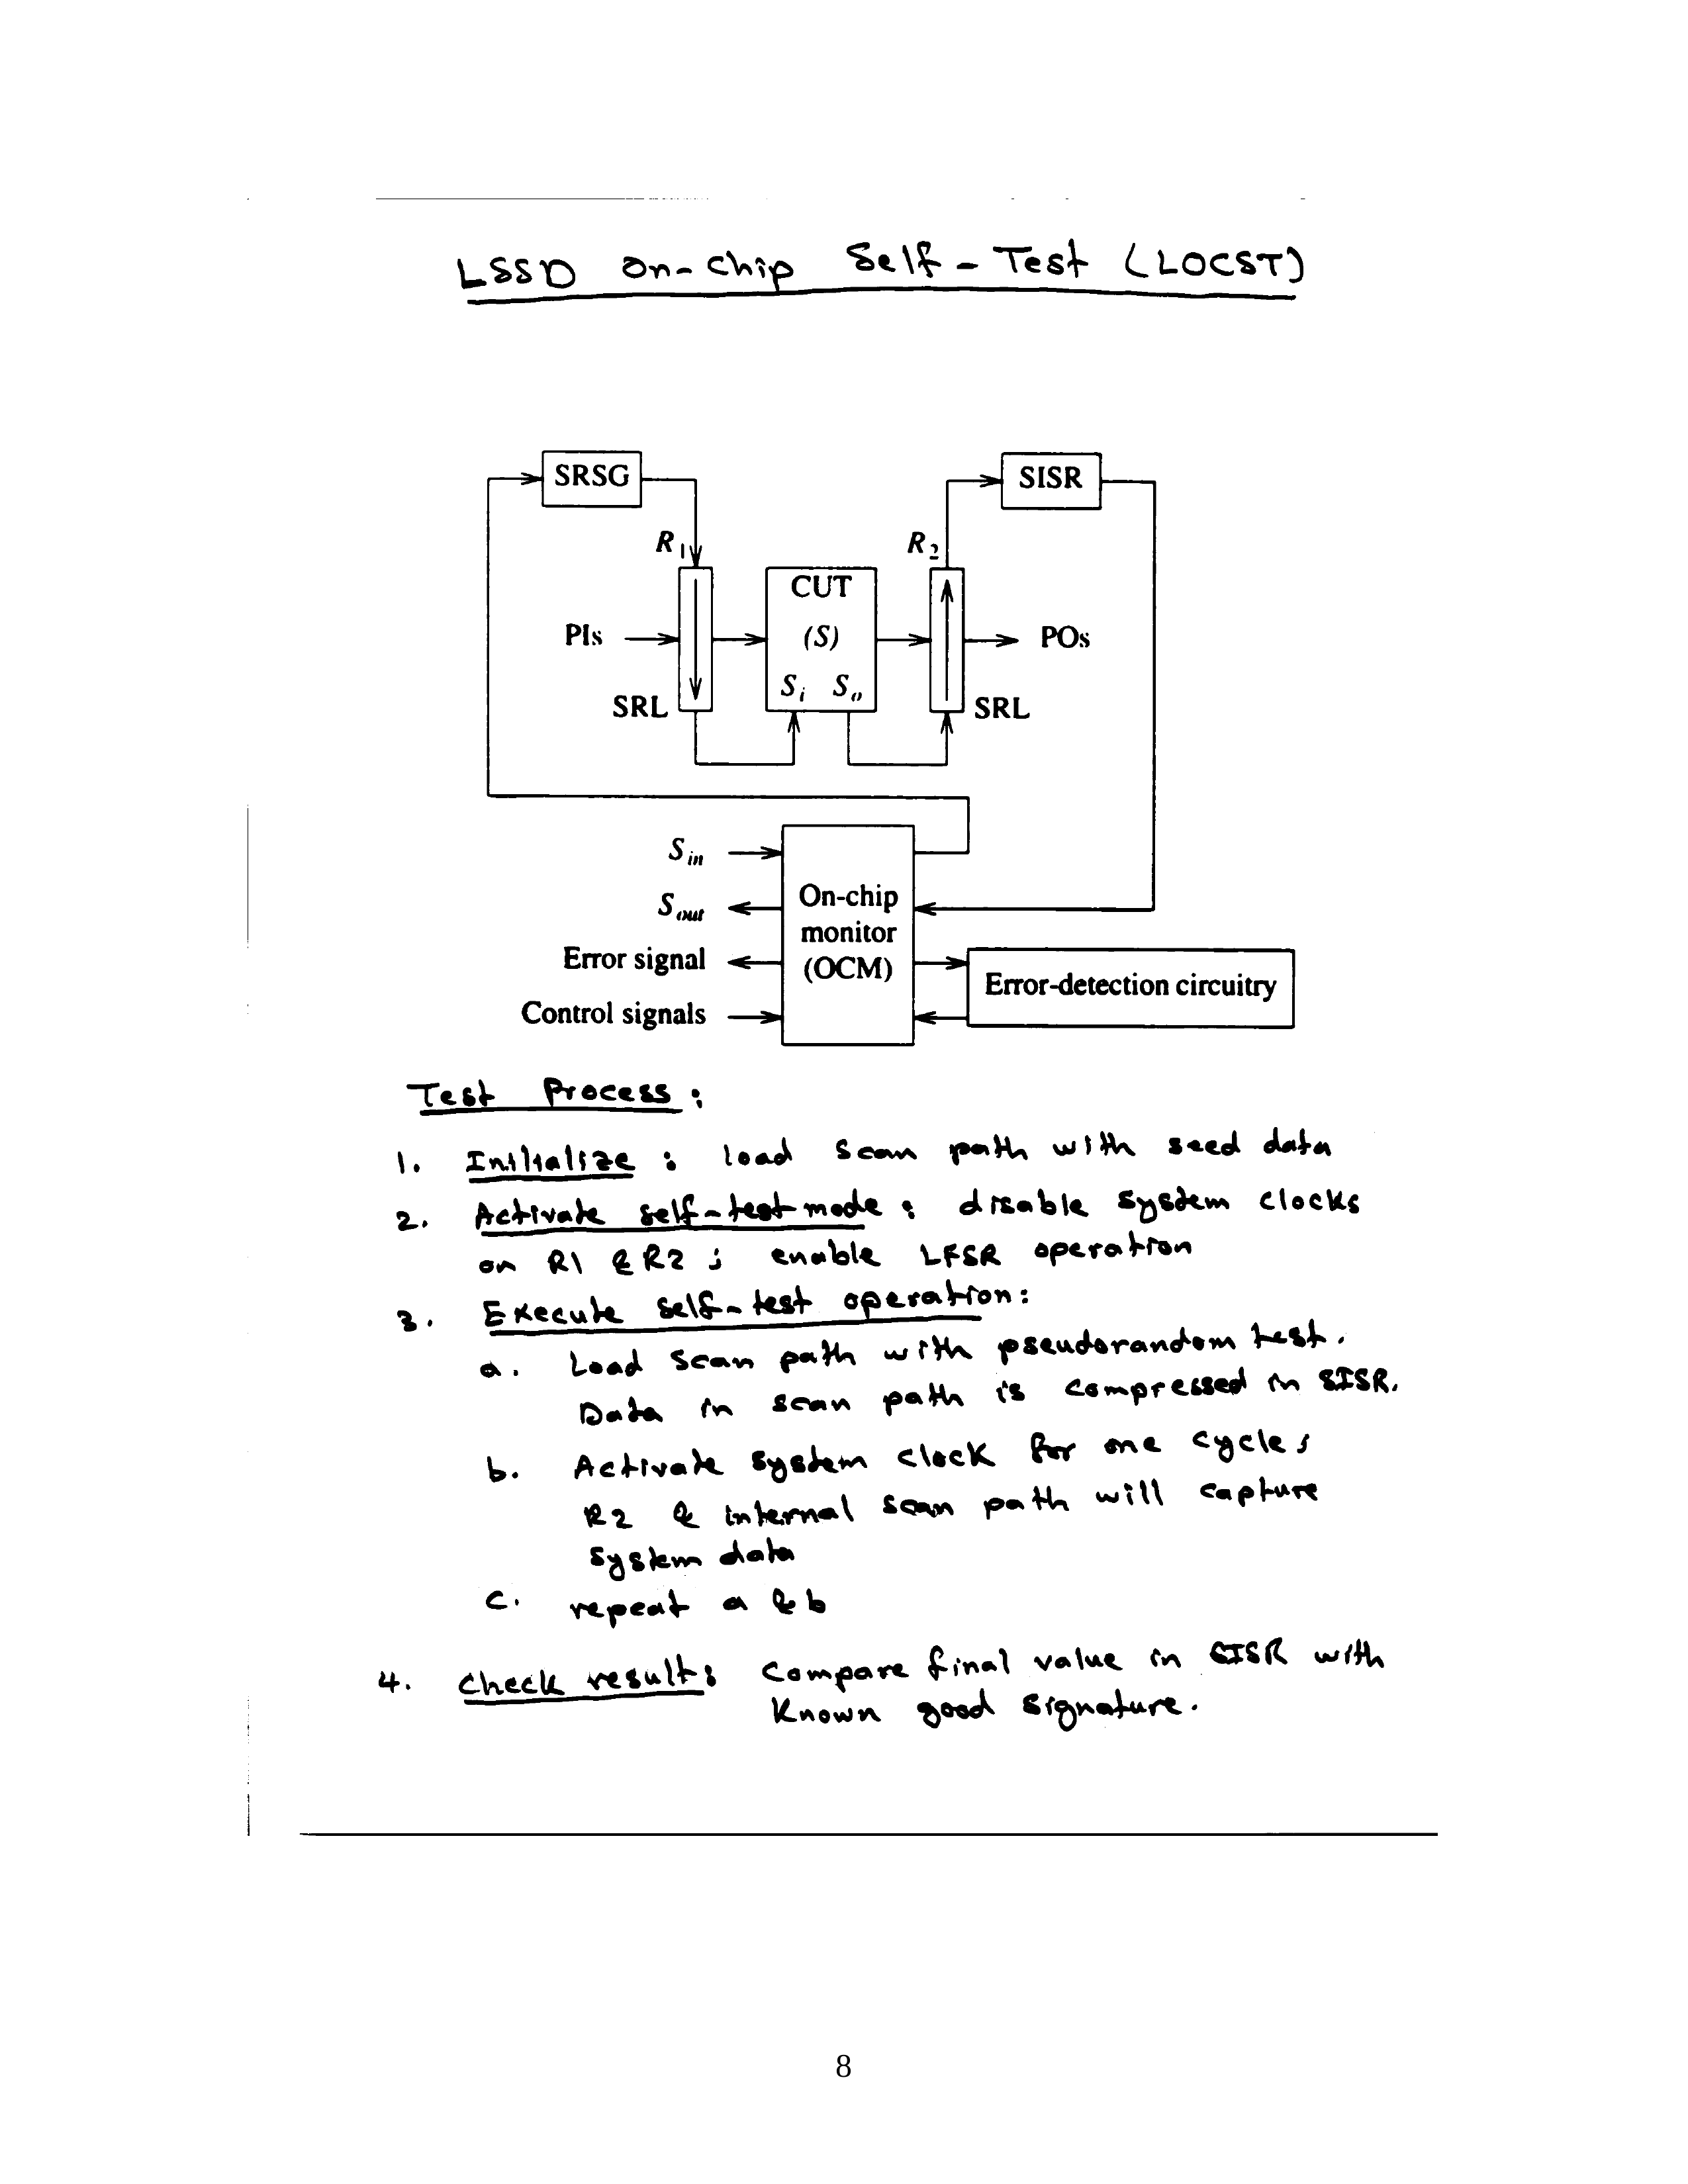 LSSD On-Chip Self-Test (LOCST)
SRSG
SISR
R1
R2
CUT
PIs
(S)
POs
Si So
SRL
SRL
Sin
On-chip
Sout
monitor
Error signal
(OCM)
Error-detection circuitry
Control signals
Test Process:
1. Initialize: load scan path with seed data
2. Activate self-test mode: disable system clocks
on R1 & R2; enable LFSR operation
3. Execute self-test operation:
a. Load scan path with pseudorandom test.
Data in scan path is compressed in SISR.
b. Activate system clock for one cycle;
R2 & internal scan path will capture
system data
c. repeat a & b
4. Check result: Compare final value in SISR with
known good signature.
8